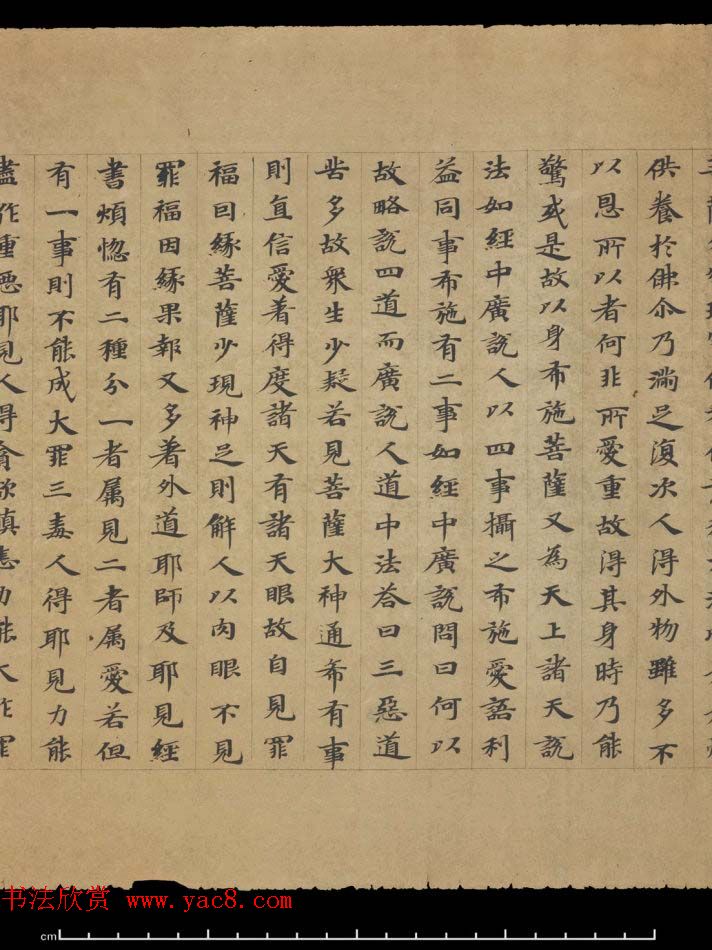 供養於佛尒乃滿足復次人得外物雖多不
以恩所以者何非所愛重故得其身時乃能
驚或是故以身布施菩薩又為天上諸天說
法如經中廣說人以四事攝之布施愛語利
益同事布施有二事如經中廣說問曰何以
故略說四道而廣說人道中法荅曰三惡道
苦多故衆生少疑若見菩薩大神通希有事
則直信愛著得度諸天有諸天眼故自見罪
福因緣菩薩少現神足則解人以肉眼不見
罪福因緣果報又多著外道耶師及耶見經
書煩惚有二種分一者属見二者属愛若但
有一事則不能成大罪三毒人得耶見力能
盡作重惡耶見人得貪欲瞋恚力能大作罪
书法欣赏 www.yac8.com
cm